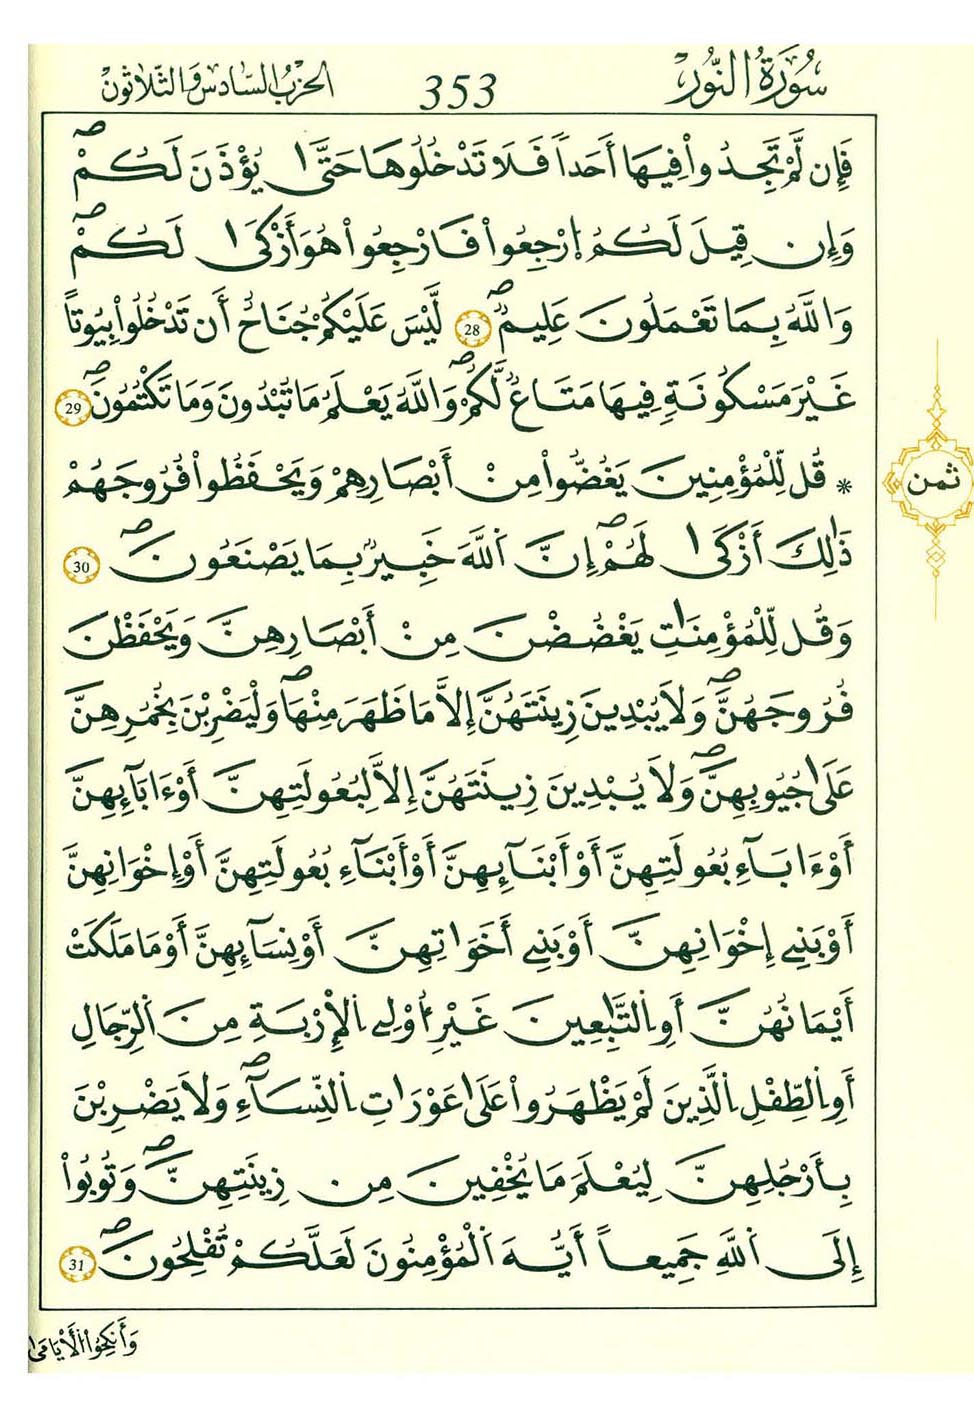 سُورَةُ النُّورِ
353
الحزب السادس والثلاثون
فَإِن لَّمْ تَجِدُواْ فِيهَا أَحَداً فَلَا تَدْخُلُوهَا حَتَّىٰ يُؤْذَنَ لَكُمْۖ
وَإِن قِيلَ لَكُمُ اُرْجِعُواْ فَارْجِعُواْ هُوَ أَزْكَىٰ لَكُمْۖ
وَاللَّهُ بِمَا تَعْمَلُونَ عَلِيمٌۖ 28 لَّيْسَ عَلَيْكُمْ جُنَاحٌ أَن تَدْخُلُواْ بِيُوتاً
غَيْرَ مَسْكُونَةٍ فِيهَا مَتَاعٌ لَّكُمْۖ وَاللَّهُ يَعْلَمُ مَا تُبْدُونَ وَمَا تَكْتُمُونَۖ 29
* قُل لِّلْمُؤْمِنِينَ يَغُضُّواْ مِنْ أَبْصَارِهِمْ وَيَحْفَظُواْ فُرُوجَهُمْ
ذَٰلِكَ أَزْكَىٰ لَهُمْۖ إِنَّ اَللَّهَ خَبِيرٌ بِمَا يَصْنَعُونَۖ 30
وَقُل لِّلْمُؤْمِنَٰتِ يَغْضُضْنَ مِنْ أَبْصَارِهِنَّ وَيَحْفَظْنَ
فُرُوجَهُنَّۖ وَلَا يُبْدِينَ زِينَتَهُنَّ إِلَّا مَا ظَهَرَ مِنْهَاۖ وَلْيَضْرِبْنَ بِخُمُرِهِنَّ
عَلَىٰ جُيُوبِهِنَّۖ وَلَا يُبْدِينَ زِينَتَهُنَّ إِلَّا لِبُعُولَتِهِنَّ أَوْ ءَابَآئِهِنَّ
أَوْ ءَابَآءِ بُعُولَتِهِنَّ أَوْ أَبْنَآئِهِنَّ أَوْ أَبْنَآءِ بُعُولَتِهِنَّ أَوْ إِخْوَانِهِنَّ
أَوْ بَنِے إِخْوَانِهِنَّ أَوْ بَنِے أَخَوَاتِهِنَّ أَوْ نِسَآئِهِنَّ أَوْ مَا مَلَكَتْ
أَيْمَانُهُنَّ أَوِ اِلتَّٰبِعِينَ غَيْرِ أُوْلِے اِلْإِرْبَةِ مِنَ اَلرِّجَالِ
أَوِ اِلطِّفْلِ اِلَّذِينَ لَمْ يَظْهَرُواْ عَلَىٰ عَوْرَاتِ اِلنِّسَآءِۖ وَلَا يَضْرِبْنَ
بِأَرْجُلِهِنَّ لِيُعْلَمَ مَا يُخْفِينَ مِن زِينَتِهِنَّۖ وَتُوبُواْ
إِلَى اَللَّهِ جَمِيعاً أَيُّهَ اَلْمُؤْمِنُونَ لَعَلَّكُمْ تُفْلِحُونَۖ 31
ثمن
وَأَنكِحُواْ الْأَيَامَىٰ